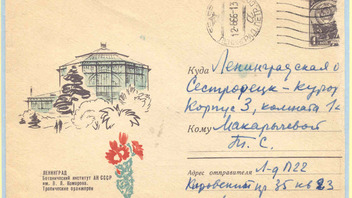 12666-13
Куда Ленинградская о
Сестрорецк - Курор
Корпус 3, комната 1
Кому Макарычевой
Т. С.
Адрес отправителя Л-д П22
Кировский пр 35 кв 23
ЛЕНИНГРАД
Ботанический институт АН СССР
им. В. Л. Комарова.
Тропическая оранжерея